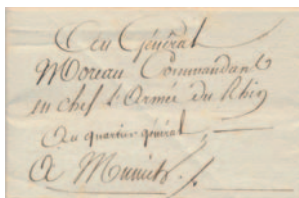 Au Général
Moreau Commandant
en chef l'Armée du Rhin
Au quartier général
A Munich